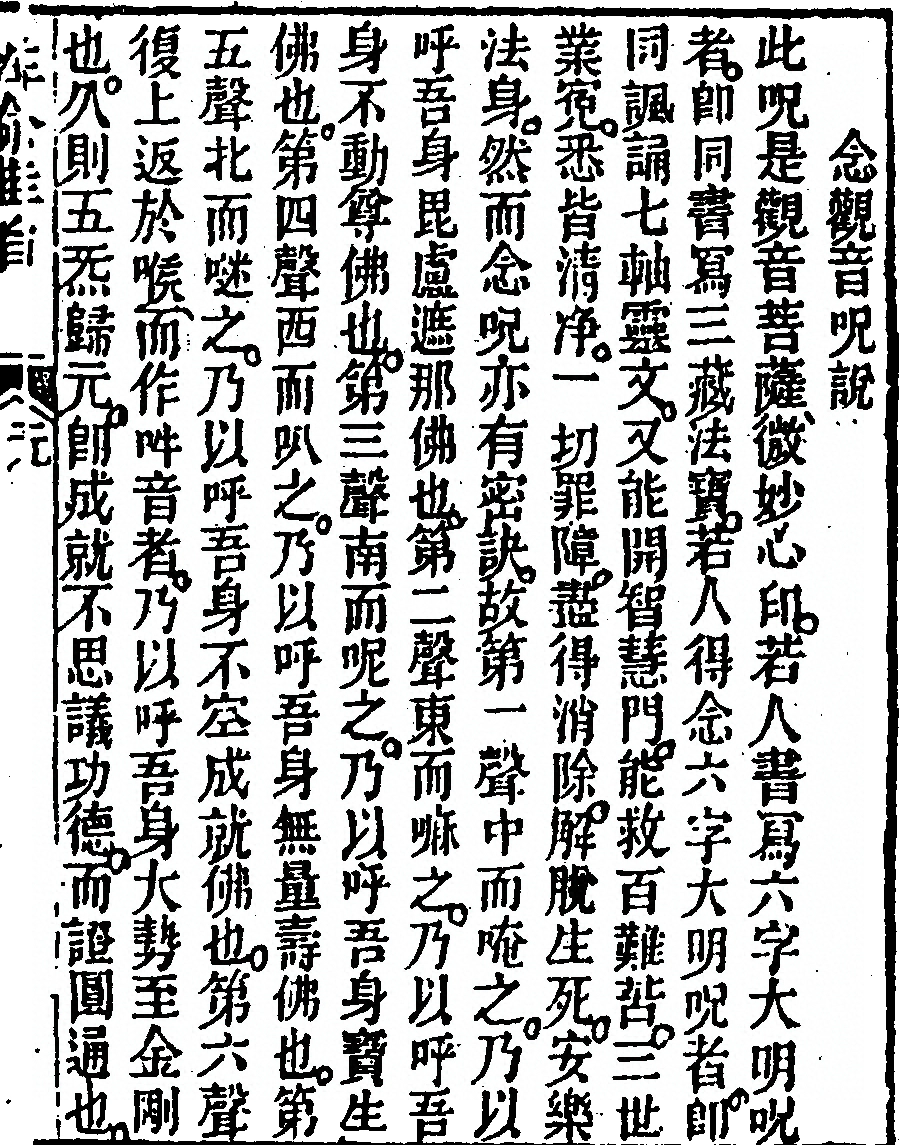 念觀音呪說
此呪是觀音菩薩微妙心印若人書寫六字大明呪
者卽同書寫三藏法寶若人得念六字大明呪者卽
同諷誦七軸靈文又能開智慧門能救百難苦三世
業寃悉皆清淨一切罪障盡得消除解脫生死安樂
法身然而念呪亦有密訣故第一聲中而唵之乃以
呼吾身毘盧遮那佛也第二聲東而嘛之乃以呼吾
身不動尊佛也第三聲南而呢之乃以呼吾身寶生
佛也第四聲西而叭之乃以呼吾身無量壽佛也第
五聲北而𠺗之乃以呼吾身不空成就佛也第六聲
復上返於喉而作吽音者乃以呼吾身大勢至金剛
也久則五炁歸元卽成就不思議功德而證圓通也